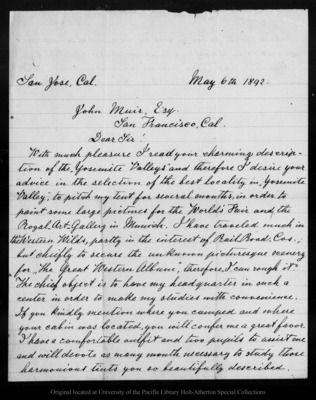 San Jose, Cal. May 6th 1892.
John Muir, Esq.
San Francisco, Cal.
Dear Sir!
With much pleasure I read your charming descrip-
tion of the "Yosemite Valleys" and therefore I desire your
advice in the selection of the best locality in Yosemite
Valley, to pitch my tent for several months, in order to
paint some large pictures for the World's Fair and the
Royal Art Gallery in Munich. I have traveled much in
the Western Wilds, partly in the interest of Rail Road Cos.,
but chiefly to secure the unknown picturesque scenery
for "The Great Western Album", therefore I can "rough it".
The chief object is to have my headquarter in such a
center in order to make my studies with convenience.
If you kindly mention where you camped and where
your cabin was located, you will confer me a great favor.
I have a comfortable outfit and two pupils to assist me
and will devote as many month necessary to study those
harmonious tints you so beautifully described.
Original located at University of the Pacific Library Holt-Atherton Special Collections